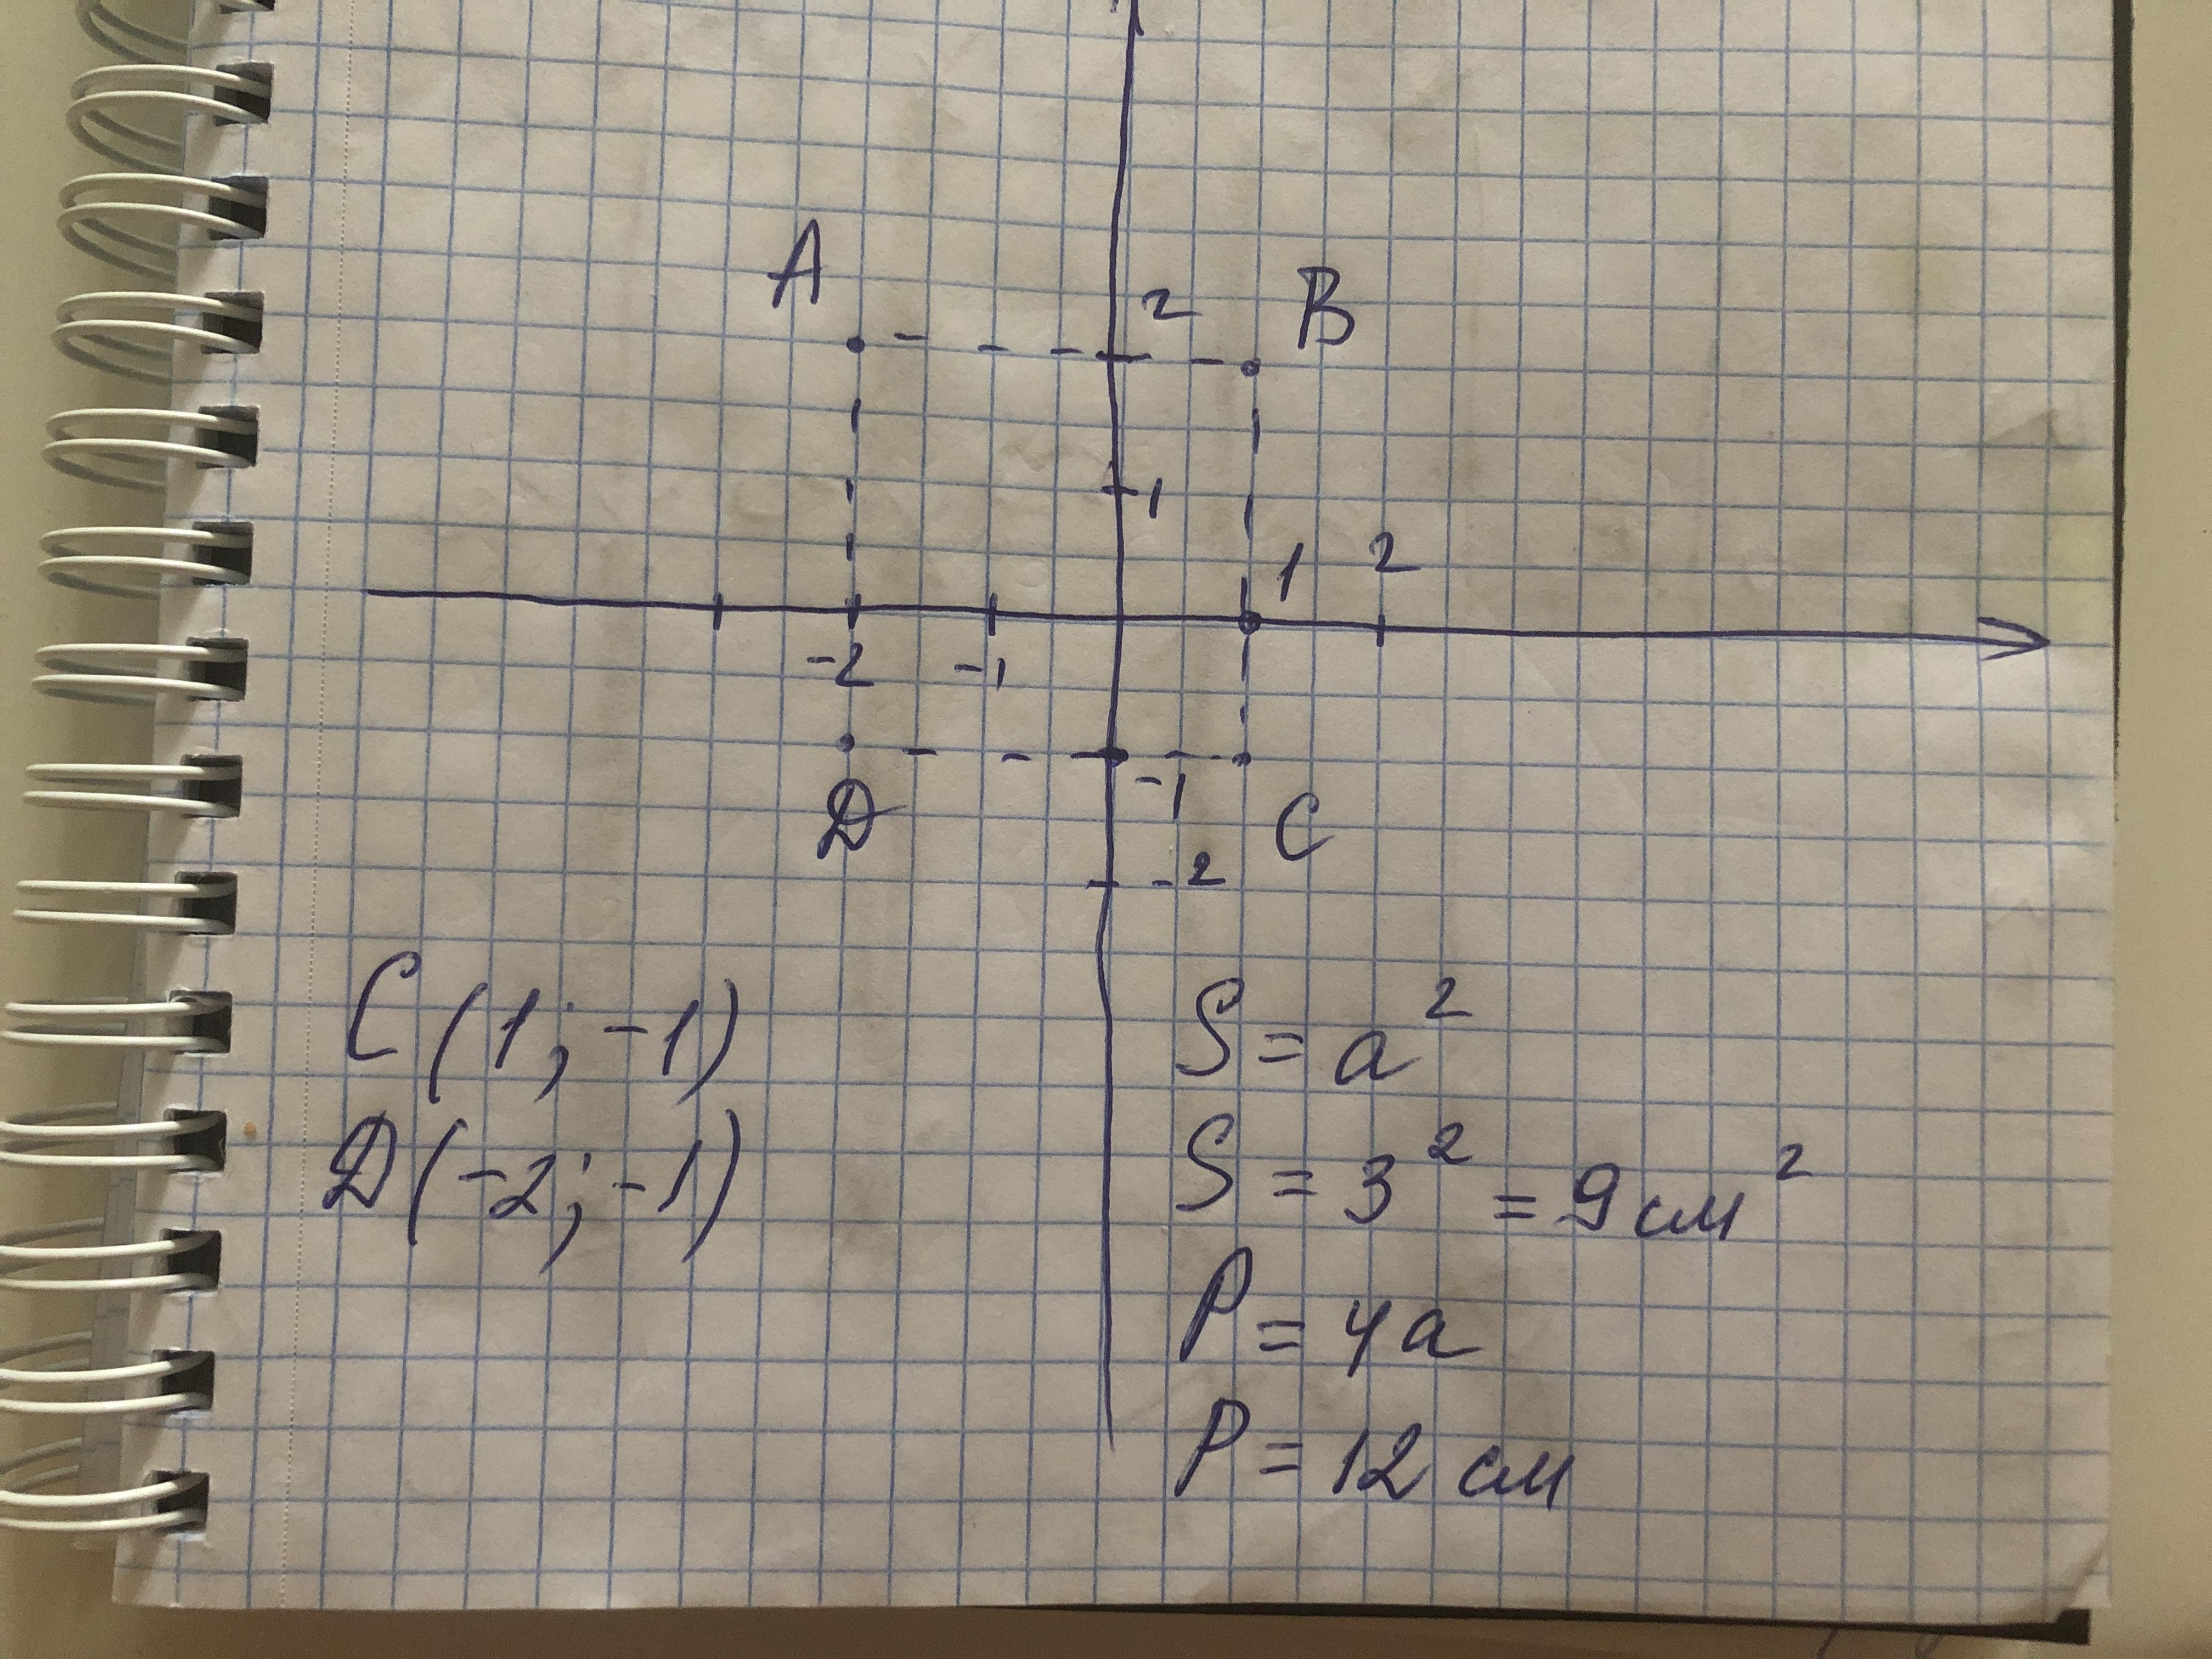 A
2 B
1
1 2
-2 -1
-1
D C
-2
C(1; -1)
D(-2; -1)
S = a²
S = 3² = 9 см²
P = 4a
P = 12 см